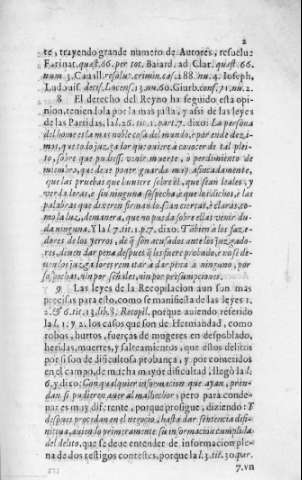 2
te, trayendo grande numero de Autores, resuelue
Farinat. quæst. 66. per tot. Baiard. ad Clar. quæst. 66.
num. 3. Cauall. resolu. crimin. cas. 188. nu. 4. Ioseph,
Ludouis. decis. Lucens. 13. nu. 60. Giurb. cons. 71. nu. 2.
8 El derecho del Reyno ha seguido esta opi-
nion, teniendola por la mas justa, y assi de las leyes
de las Partidas, la l. 26. tit. 1. part. 7. dixo: La persona
del home es la mas noble cosa del mundo, è por ende dezi-
mos, que todo juzgador que ouiere à conocer de tal plei-
to, sobre que pudiesse venir muerte, ò perdimiento de
miembro, que deue poner guarda muy afincadamente,
que las pruebas que huuiere sobre èl, que sean leales, y
verdaderas, è sin ninguna sospecha, è que los dichos, è las
palabras que dixeren firmando sean ciertas, è claras, co-
mo la luz, de manera, que no pueda sobre ellas venir du-
da ninguna. Y la l. 7. tit. 1. p. 7. dixo: Tàbien à los faze-
dores de los yerros, de q̃ son acusados ante los juzgado-
res, deuen dar pena despues q̃ les fuere probado, è no se de-
uen los juzgadores rematar a dar pena à ninguno, por
sospechas, nin por señales, nin por presumpciones.
9 Las leyes de la Recopilacion aun son mas
precisas para esto, como se manifiesta de las leyes 1.
2. & 6. tit. 13. lib. 8. Recopil. porque auiendo referido
la l. 1. y 2. los casos que son de Hermandad, como
robos, hurtos, fuerças de mugeres en despoblado,
heridas, muertes, y salteamientos, que estos delitos
por si son de dificultosa probança, y por cometidos
en el campo, de mucha mayor dificultad, llegò la l.
6. y dixo: Con qualquier informacion que ayan, prin-
dan si pudieren auer al malhechor; pero para conde-
nar es muy diferente, porque prosigue, diziendo: Y
despues procedan en el negocio, hasta dar sentencia difi-
nitiua, auiendo primeramente su informacion cumplida
del delito, que se deue entender de informacion ple-
na de dos testigos contestes, porque la l. 3. tit. 30. par.
7. vn